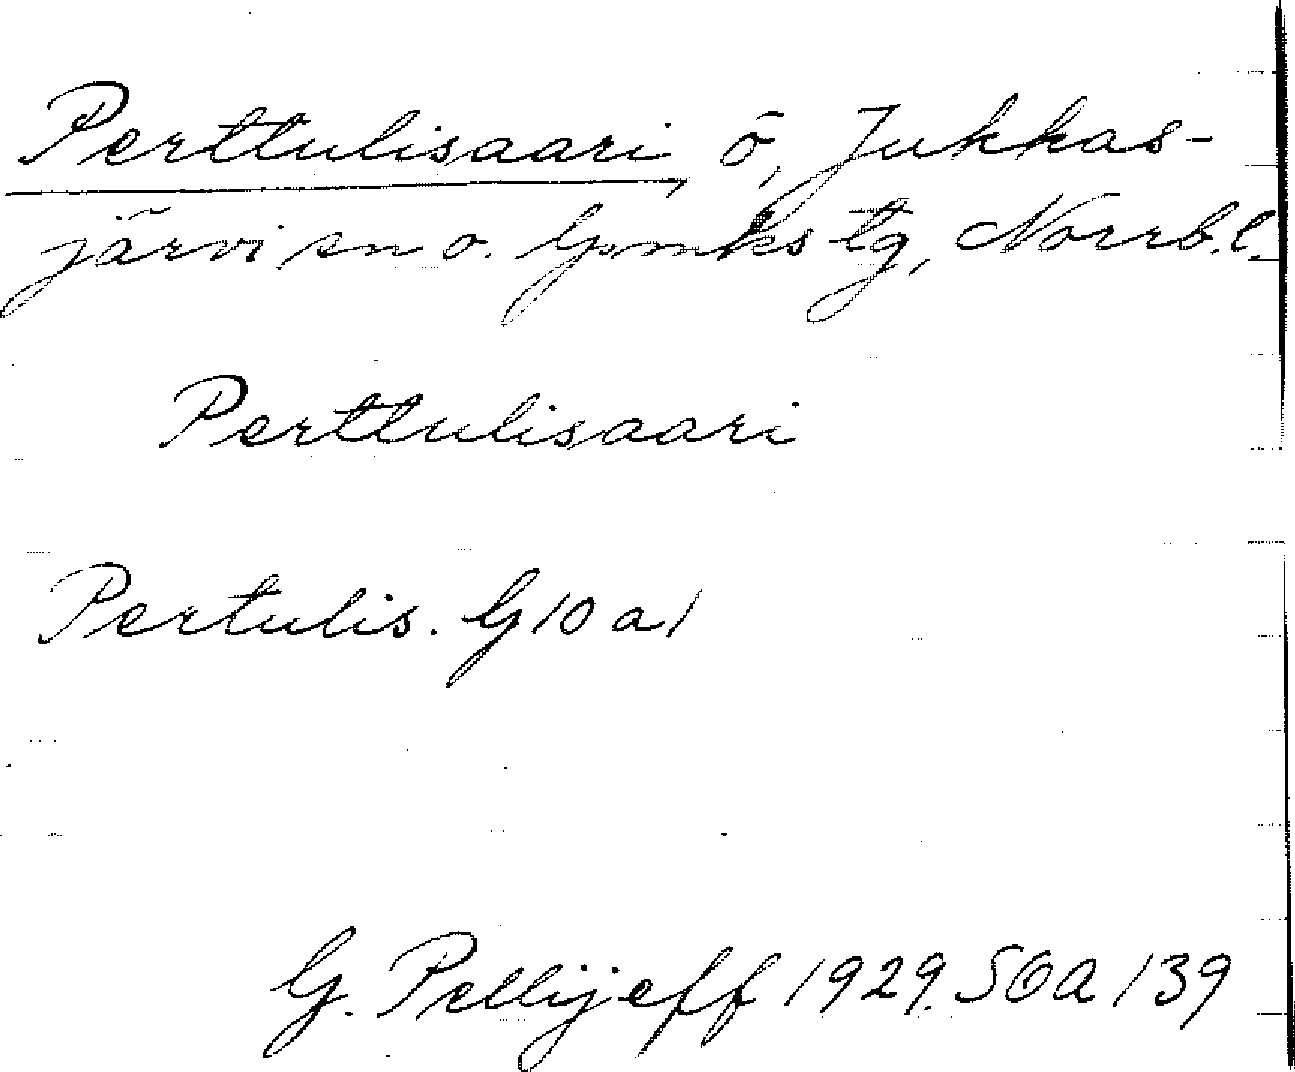 Perttulisaari, ö, Jukkas-
järvi sn o. Gpmks tg, Norrb.l.
Perttulisaari
Pertulis. G10a1
G. Pellijeff 1929. SOA 139